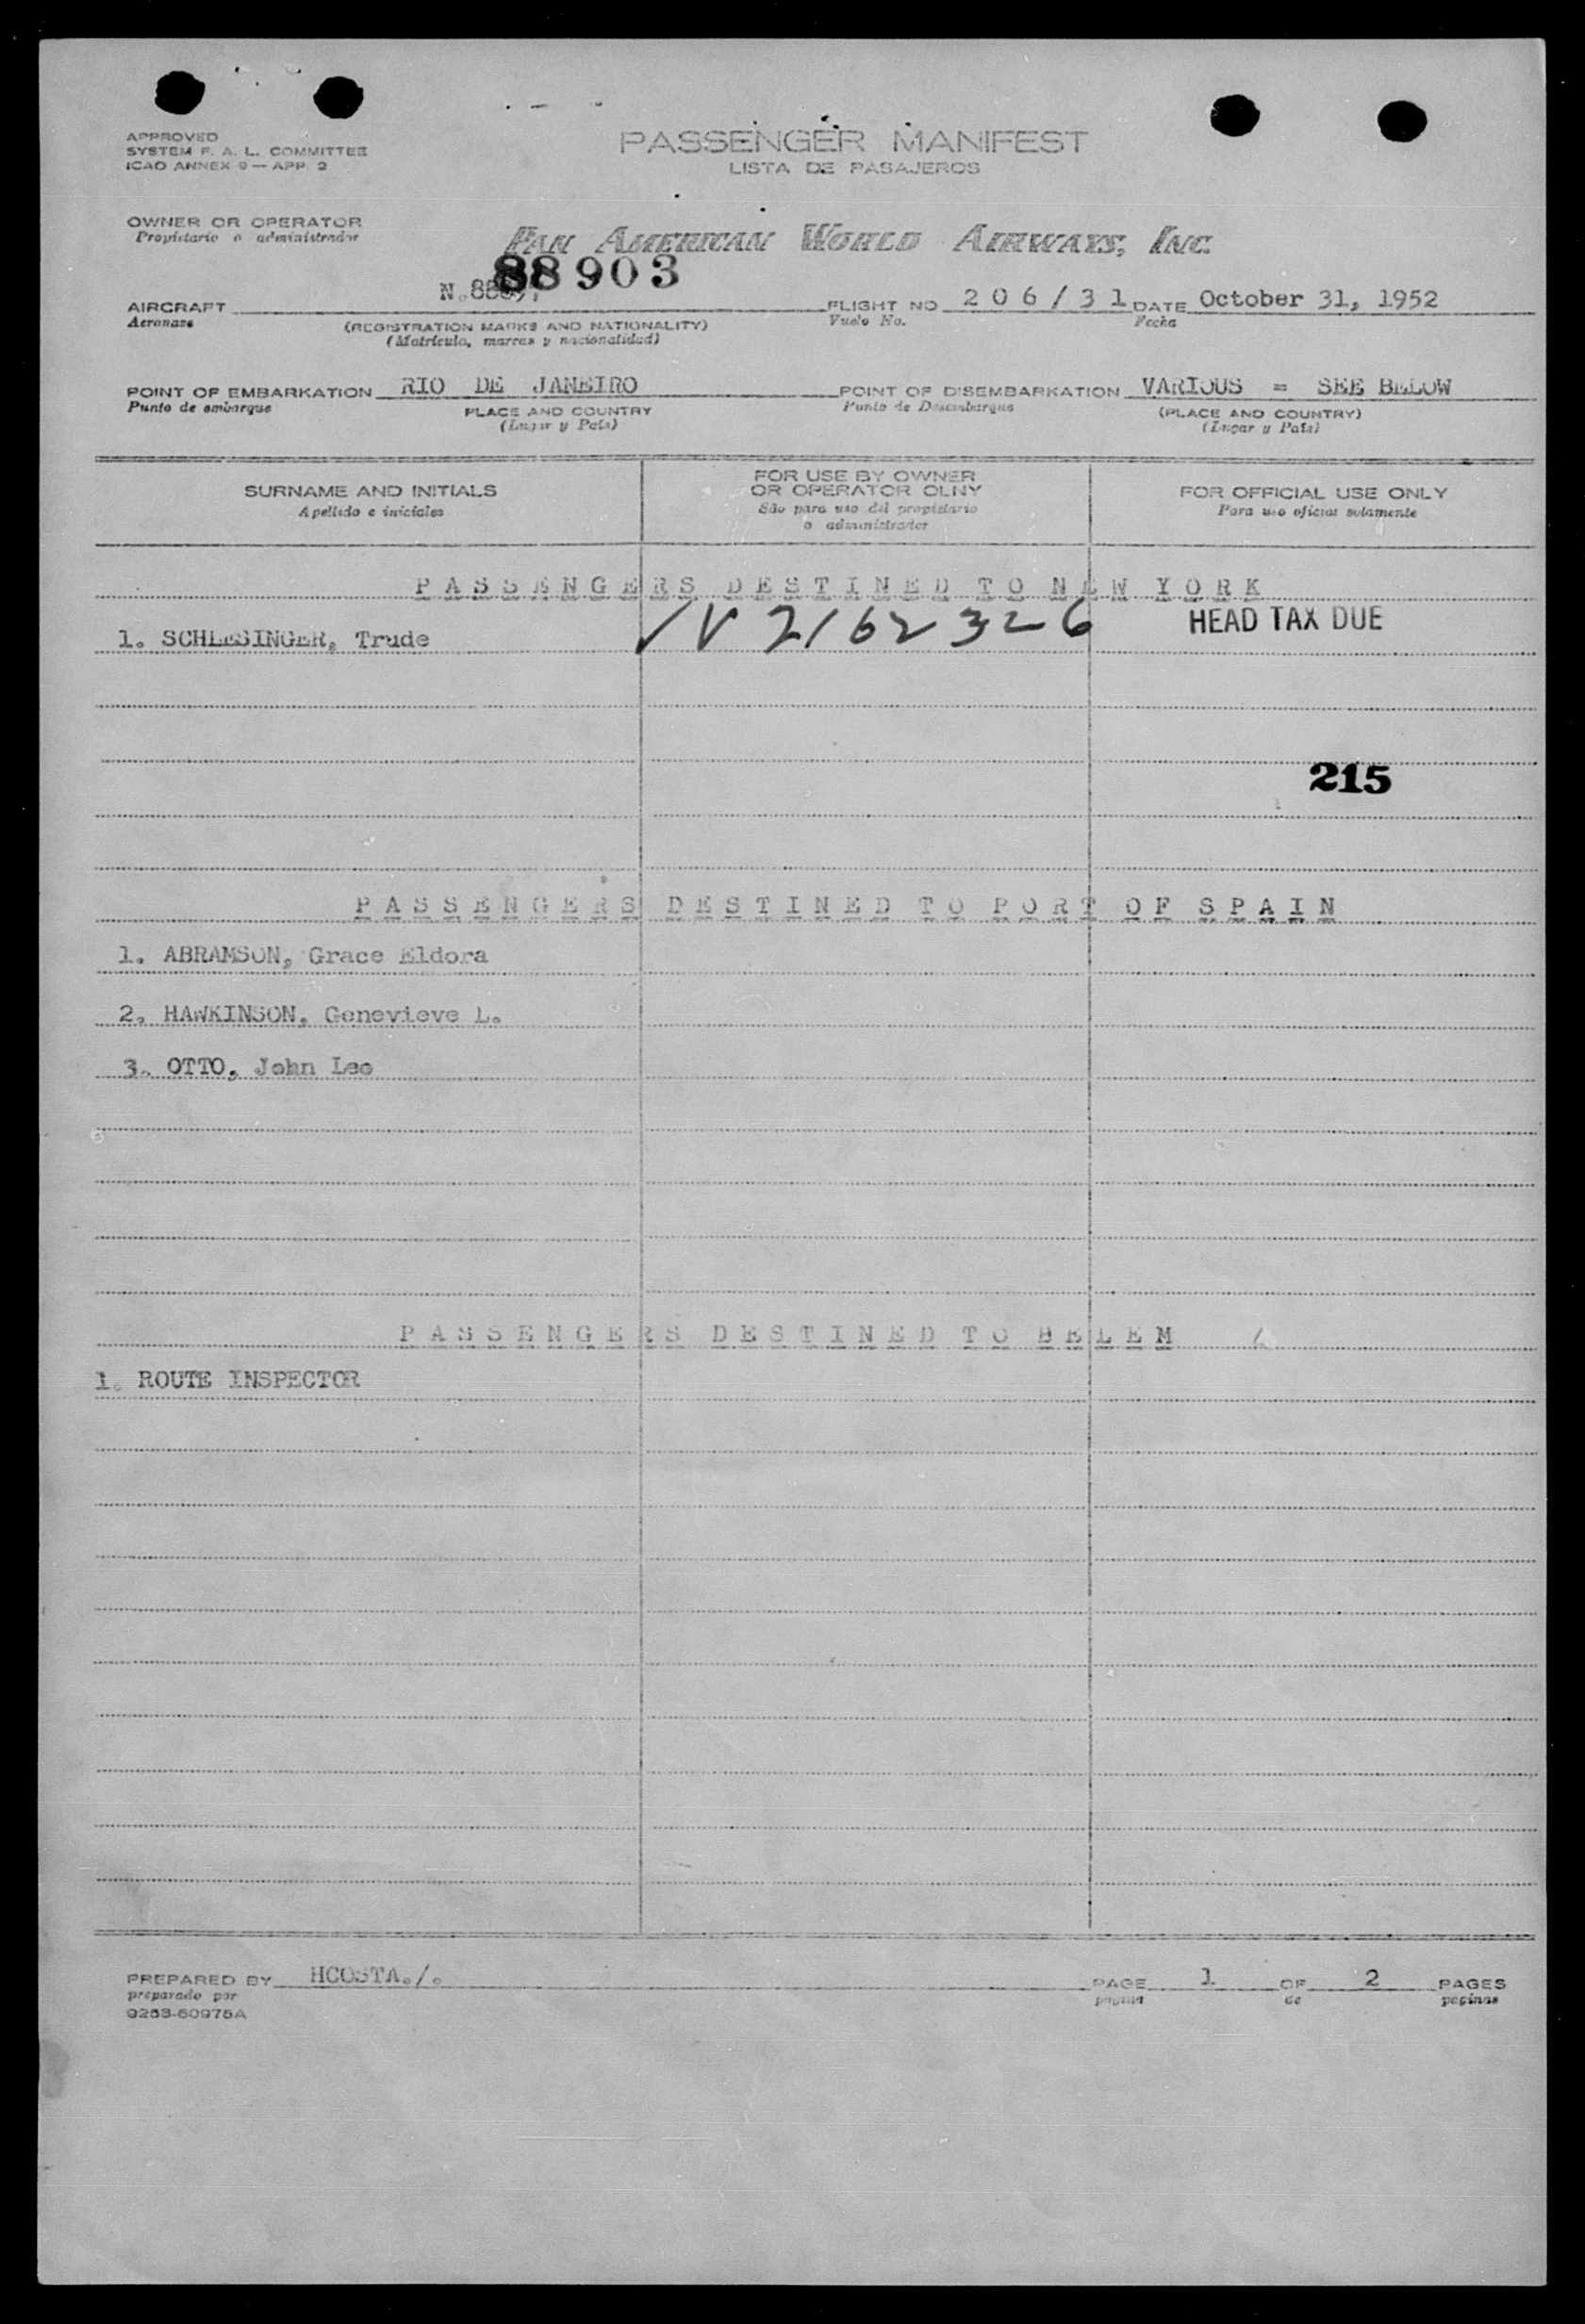 APPROVED
SYSTEM F. A. L. COMMITTEE
ICAO ANNEX 9 — APP. 2
PASSENGER MANIFEST
LISTA DE PASAJEROS
OWNER OR OPERATOR
Propietario o administrador
PAN AMERICAN WORLD AIRWAYS, INC.
88903
AIRCRAFT N.88 FLIGHT NO 206/31 DATE October 31, 1952
Aeronave (REGISTRATION MARKS AND NATIONALITY) Vuelo No. Fecha
(Matrícula, marcas y nacionalidad)
POINT OF EMBARKATION RIO DE JANEIRO POINT OF DISEMBARKATION VARIOUS = SEE BELOW
Punto de embarque PLACE AND COUNTRY Punto de Desembarque (PLACE AND COUNTRY)
(Lugar y País) (Lugar y País)
SURNAME AND INITIALS
Apellido e iniciales
FOR USE BY OWNER
OR OPERATOR OLNY
São para uso del propietario
o administrador
FOR OFFICIAL USE ONLY
Para uso oficial solamente
PASSENGERS DESTINED TO NEW YORK
1. SCHLESINGER, Trude
✓ V 2162326
HEAD TAX DUE
215
PASSENGERS DESTINED TO PORT OF SPAIN
1. ABRAMSON, Grace Eldora
2. HAWKINSON, Genevieve L.
3. OTTO, John Leo
PASSENGERS DESTINED TO BELEM
1. ROUTE INSPECTOR
PREPARED BY HCOSTA./. PAGE 1 OF 2 PAGES
preparado por pagina de paginas
9263-60975A